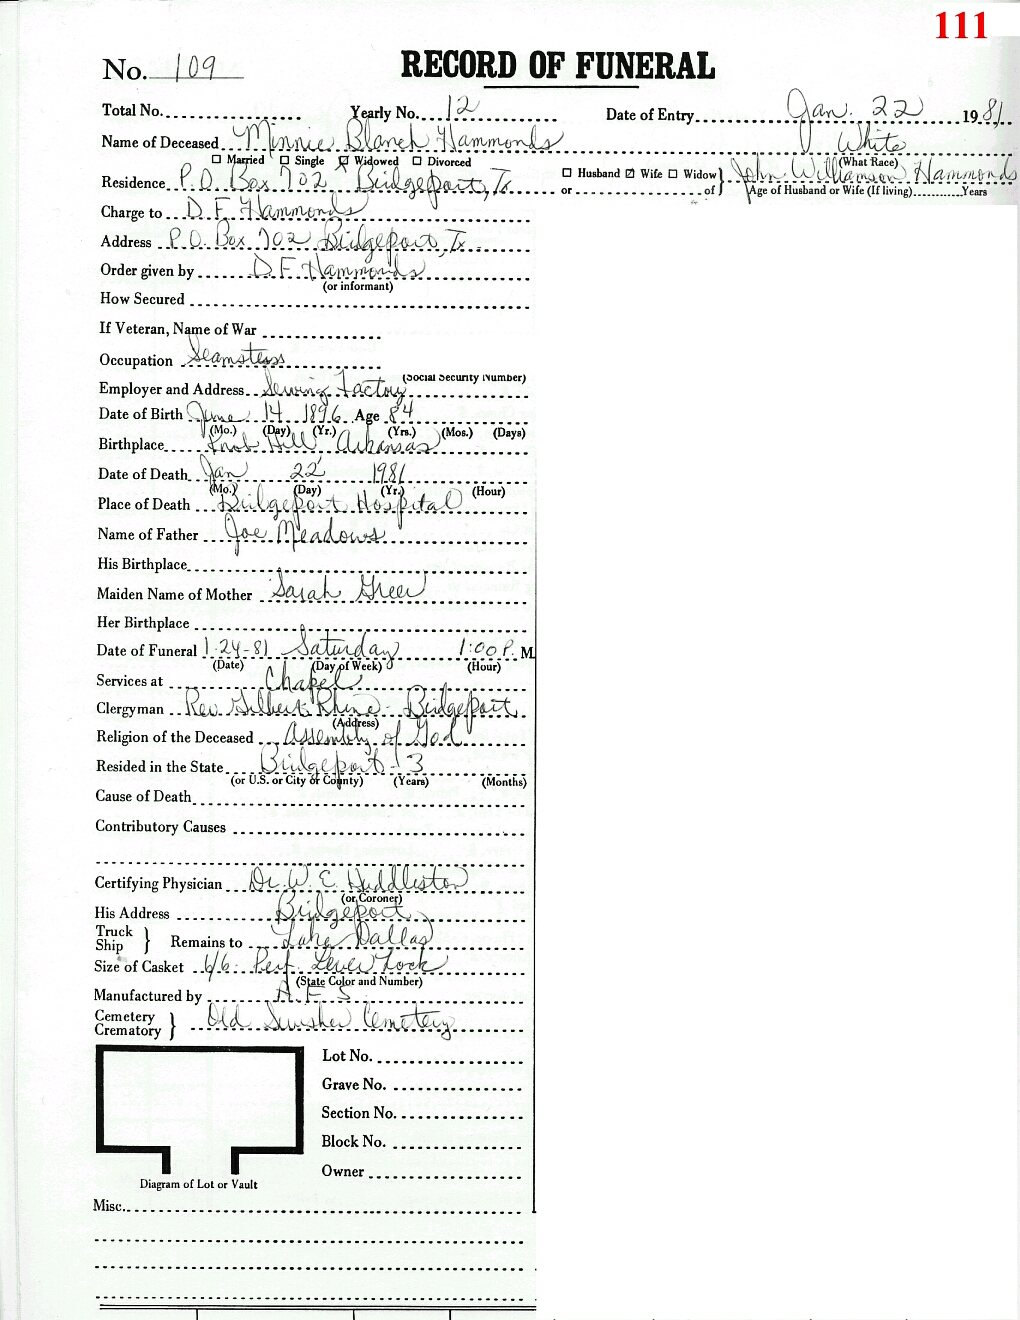 111
No. 109 RECORD OF FUNERAL
Total No. Yearly No. 12 Date of Entry Jan. 22 1981
Name of Deceased Minnie Blanch Hammonds White
☐ Married ☐ Single ☑ Widowed ☐ Divorced (What Race)
Residence P.O. Box 702 Bridgeport, Tx ☐ Husband ☑ Wife ☐ Widow } John Williamson Hammonds
or of } Age of Husband or Wife (If living) Years
Charge to D F Hammonds
Address P.O. Box 702 Bridgeport, Tx.
Order given by D.F. Hammonds
(or informant)
How Secured
If Veteran, Name of War
Occupation Seamstess
(Social Security Number)
Employer and Address Sewing Factory
Date of Birth June 14 1896 Age 84
(Mo.) (Day) (Yr.) (Yrs.) (Mos.) (Days)
Birthplace Knob Hill Arkansas
Date of Death Jan 22 1981
(Mo.) (Day) (Yr.) (Hour)
Place of Death Bridgeport Hospital
Name of Father Joe Meadows
His Birthplace
Maiden Name of Mother Sarah Greer
Her Birthplace
Date of Funeral 1-24-81 Saturday 1:00 P. M
(Date) (Day of Week) (Hour)
Services at Chapel
Clergyman Rev Gilbert Rhine - Bridgeport
(Address)
Religion of the Deceased Assembly of God
Resided in the State Bridgeport - 3
(or U.S. or City or County) (Years) (Months)
Cause of Death
Contributory Causes
Certifying Physician Dr. W. E. Huddleston
(or Coroner)
His Address Bridgeport
Truck
Ship } Remains to Lake Dallas
Size of Casket 6/6 Perf. Lever Lock
(State Color and Number)
Manufactured by A F S
Cemetery
Crematory } Old Swisher Cemetery
Lot No.
Grave No.
Section No.
Block No.
Owner
Diagram of Lot or Vault
Misc.